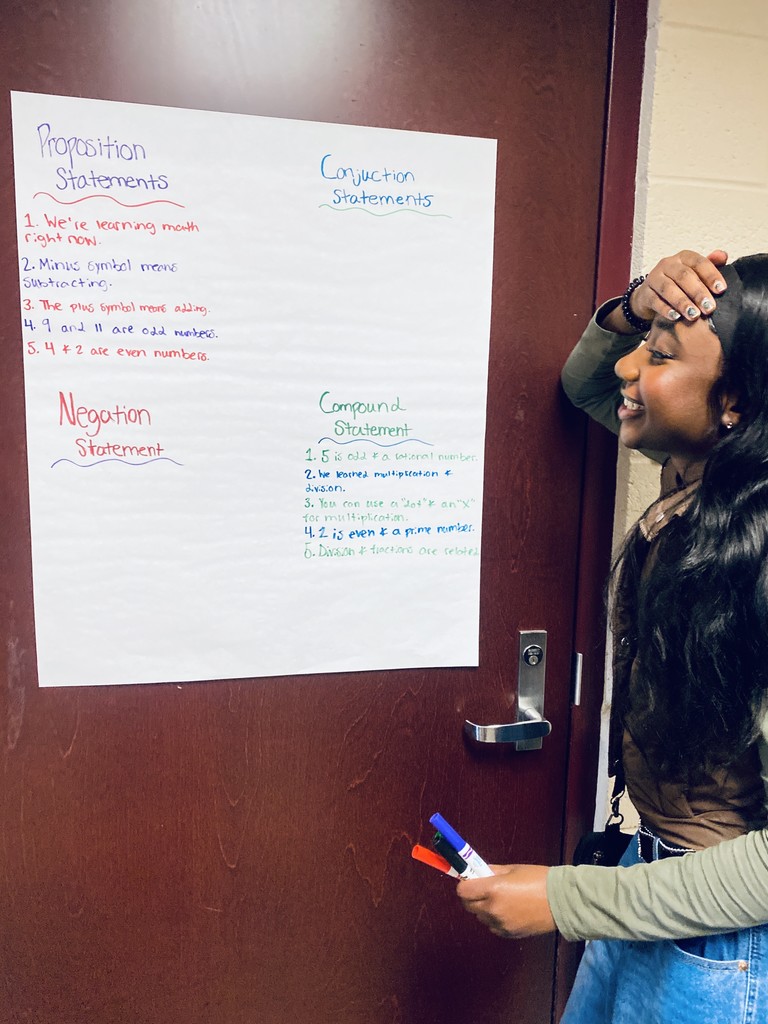 Proposition
Statements
1. We're learning math
right now.
2. Minus symbol means
subtracting.
3. The plus symbol means adding.
4. 9 and 11 are odd numbers.
5. 4 & 2 are even numbers.
Conjuction
Statements
Negation
Statement
Compound
Statement
1. 5 is odd & a rational number.
2. We learned multiplication &
division.
3. You can use a "dot" & an "X"
for multiplication.
4. 2 is even & a prime number.
5. Division & fractions are related